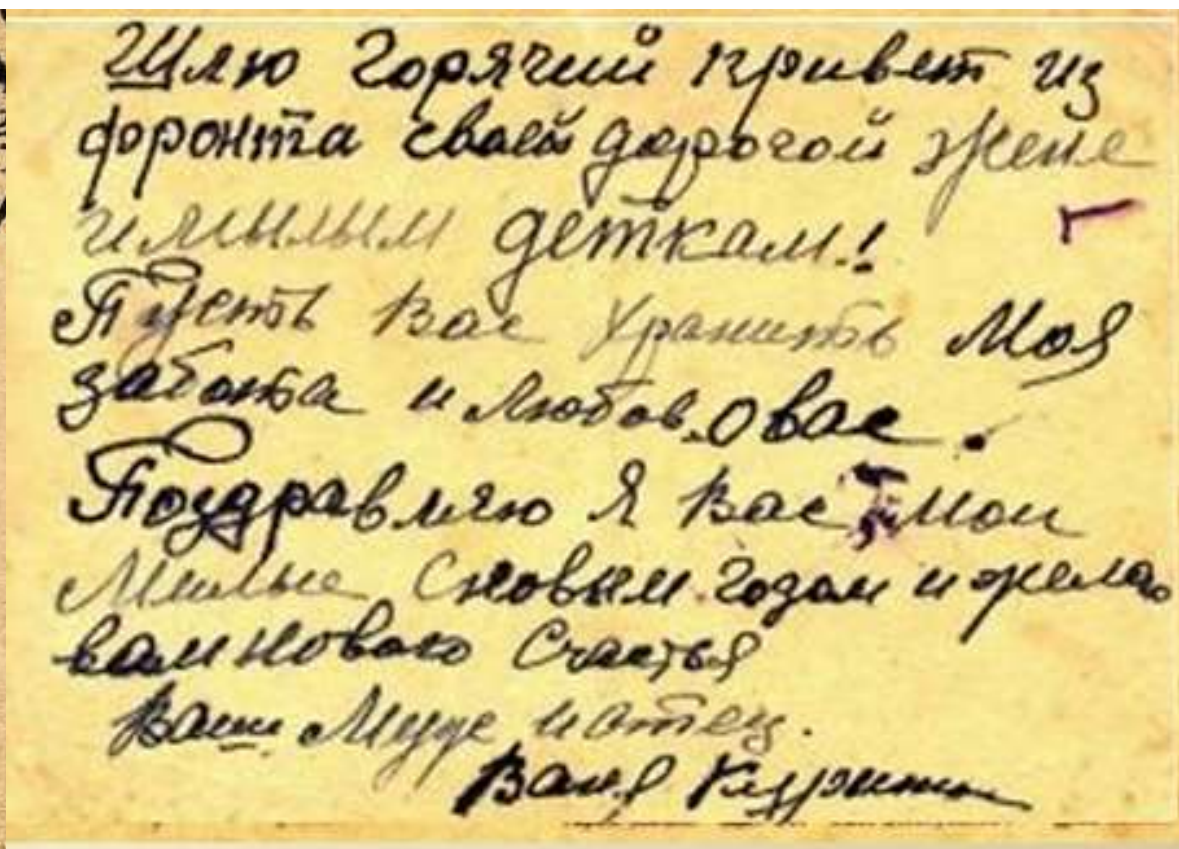 Шлю горячий привет из
фронта своей дорогой жене
и милым деткам!
Пусть Вас хранить Моя
забота и любов о вас.
Поздравляю я Вас Мои
Милые с новым годом и желаю
вам нового Счастья
Ваш Муж и отец.
Ваня